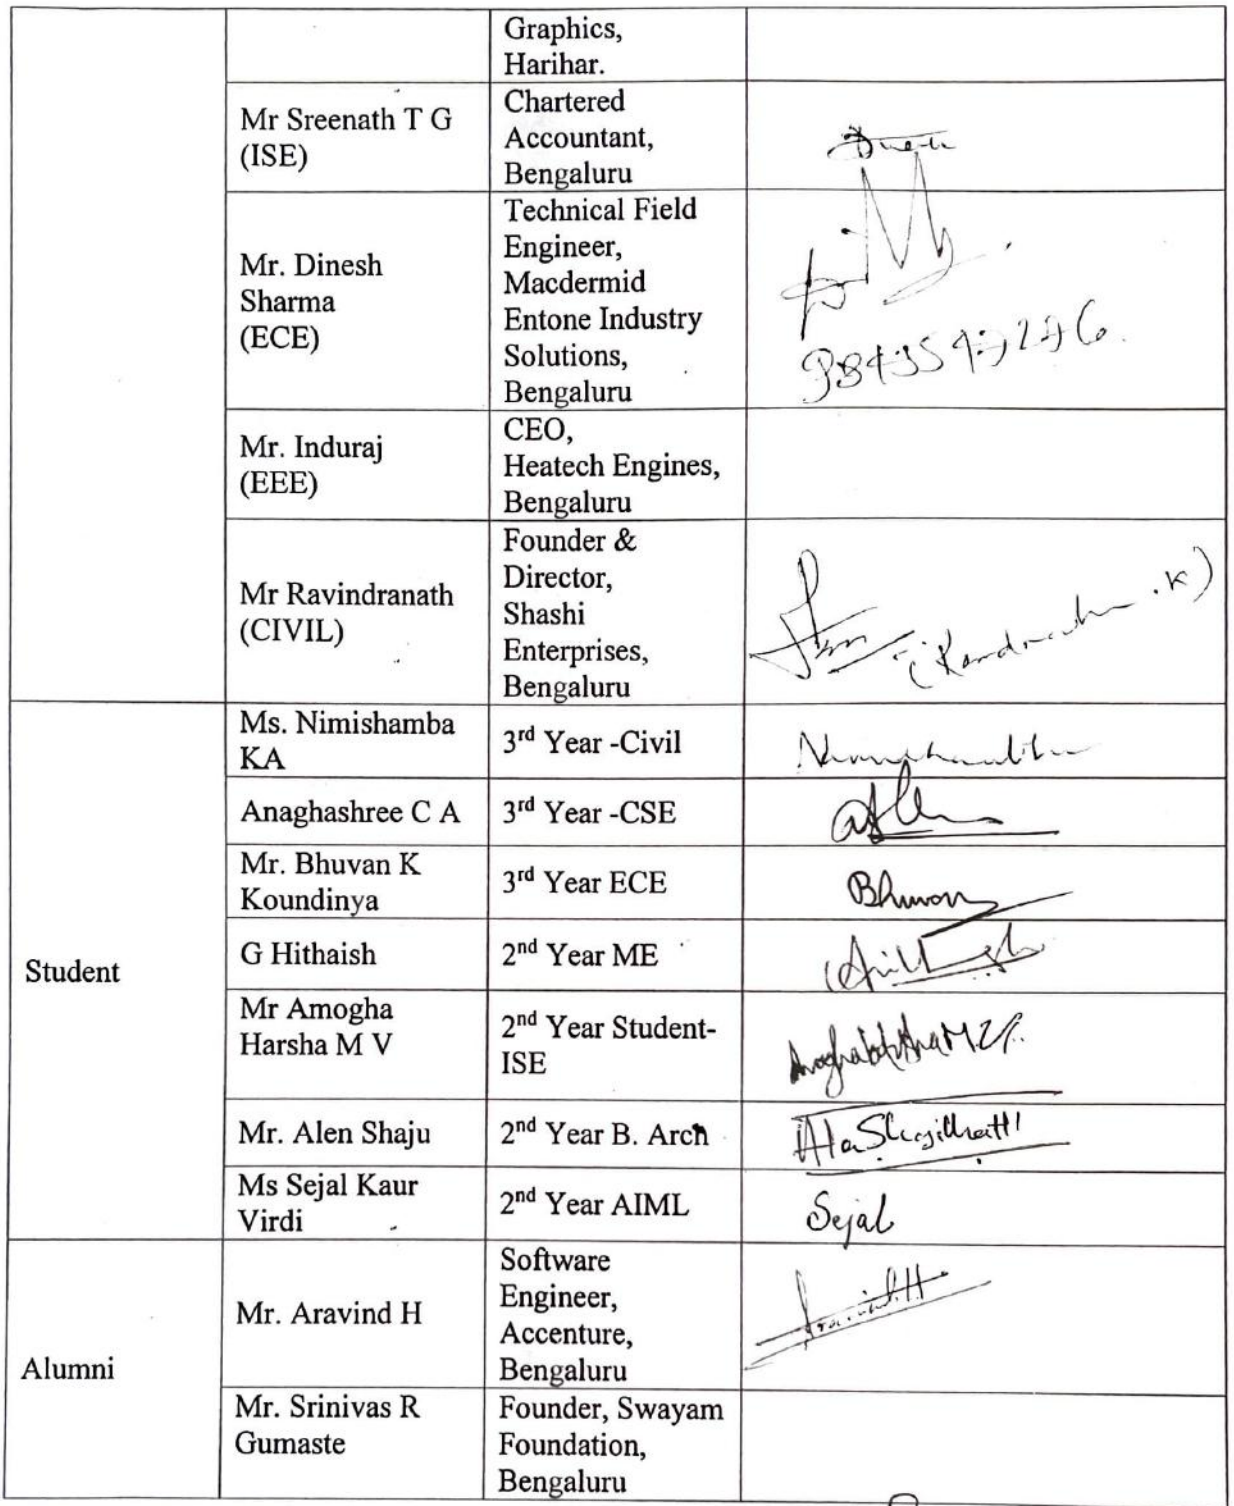 Graphics,
Harihar.
Mr Sreenath T G
(ISE)
Chartered
Accountant,
Bengaluru
Mr. Dinesh
Sharma
(ECE)
Technical Field
Engineer,
Macdermid
Entone Industry
Solutions,
Bengaluru
Mr. Induraj
(EEE)
CEO,
Heatech Engines,
Bengaluru
Mr Ravindranath
(CIVIL)
Founder &
Director,
Shashi
Enterprises,
Bengaluru
Student
Ms. Nimishamba
KA
3rd Year -Civil
Anaghashree C A
3rd Year -CSE
Mr. Bhuvan K
Koundinya
3rd Year ECE
Bhuvan
G Hithaish
2nd Year ME
Mr Amogha
Harsha M V
2nd Year Student-
ISE
Mr. Alen Shaju
2nd Year B. Arch
Ms Sejal Kaur
Virdi
2nd Year AIML
Sejal
Alumni
Mr. Aravind H
Software
Engineer,
Accenture,
Bengaluru
Aravind.H
Mr. Srinivas R
Gumaste
Founder, Swayam
Foundation,
Bengaluru